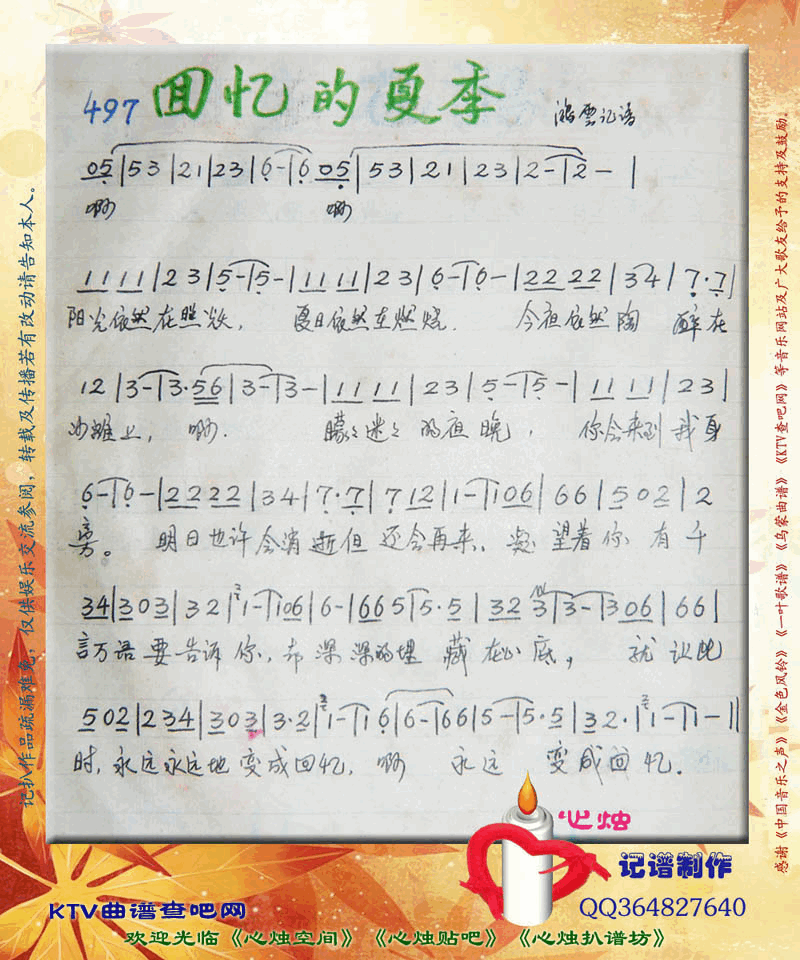 497 回忆的夏季 鸿雲记谱
05|53|21|23|6-|6 05|53|21|23|2-|2-|
啊 啊
1111|23|5-|5-|1111|23|6-|6-|2222|34|7·7|
阳光依然在照耀, 夏日依然在燃烧. 今夜依然陶 醉在
12|3-|3·56|3-|3-|1111|23|5-|5-|1111|23|
沙难上, 啊. 朦々迷々的夜晚, 你会来到我身
6-|6-|2222|34|7·7|712|1-|106|66|502|2
旁。 明日也许会消逝但还会再来、凝望着你有千
34|303|32|1-|106|6-|665|5·5|32 3|3-|306|66|
言万语要告诉你,却深深的埋藏在心底, 就让此
502|234|303|3·2|1-|16|6-|66|5-|5·5|32·|1-|1-||
时,永远永远地变成回忆, 啊 永远 变成回忆.
记扒作品疏漏难免,仅供娱乐交流参阅,转载及传播若有改动请告知本人。
感谢《中国音乐之声》《金色风铃》《一叶歌谱》《乌蒙曲谱》《KTV查吧网》等音乐网站及广大歌友给予的支持及鼓励。
心烛
记谱制作
KTV曲谱查吧网
QQ364827640
欢迎光临《心烛空间》《心烛贴吧》《心烛扒谱坊》